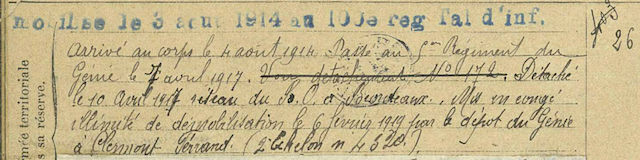 mobilisé le 3 août 1914 au 100e reg Tal d'inf.
Arrivé au corps le 4 août 1914 Passé au 5me Régiment du
Génie le 7 avril 1917. Voir détachement N° 172. Détaché
le 10 Avril 1917 réseau du P. O. à Bordeaux. Mis en congé
illimité de démobilisation le 6 février 1919 par le dépôt du Génie
à Clermont Ferrand. (2e Echelon n 4520.)
26
ée territoriale
sa réserve.